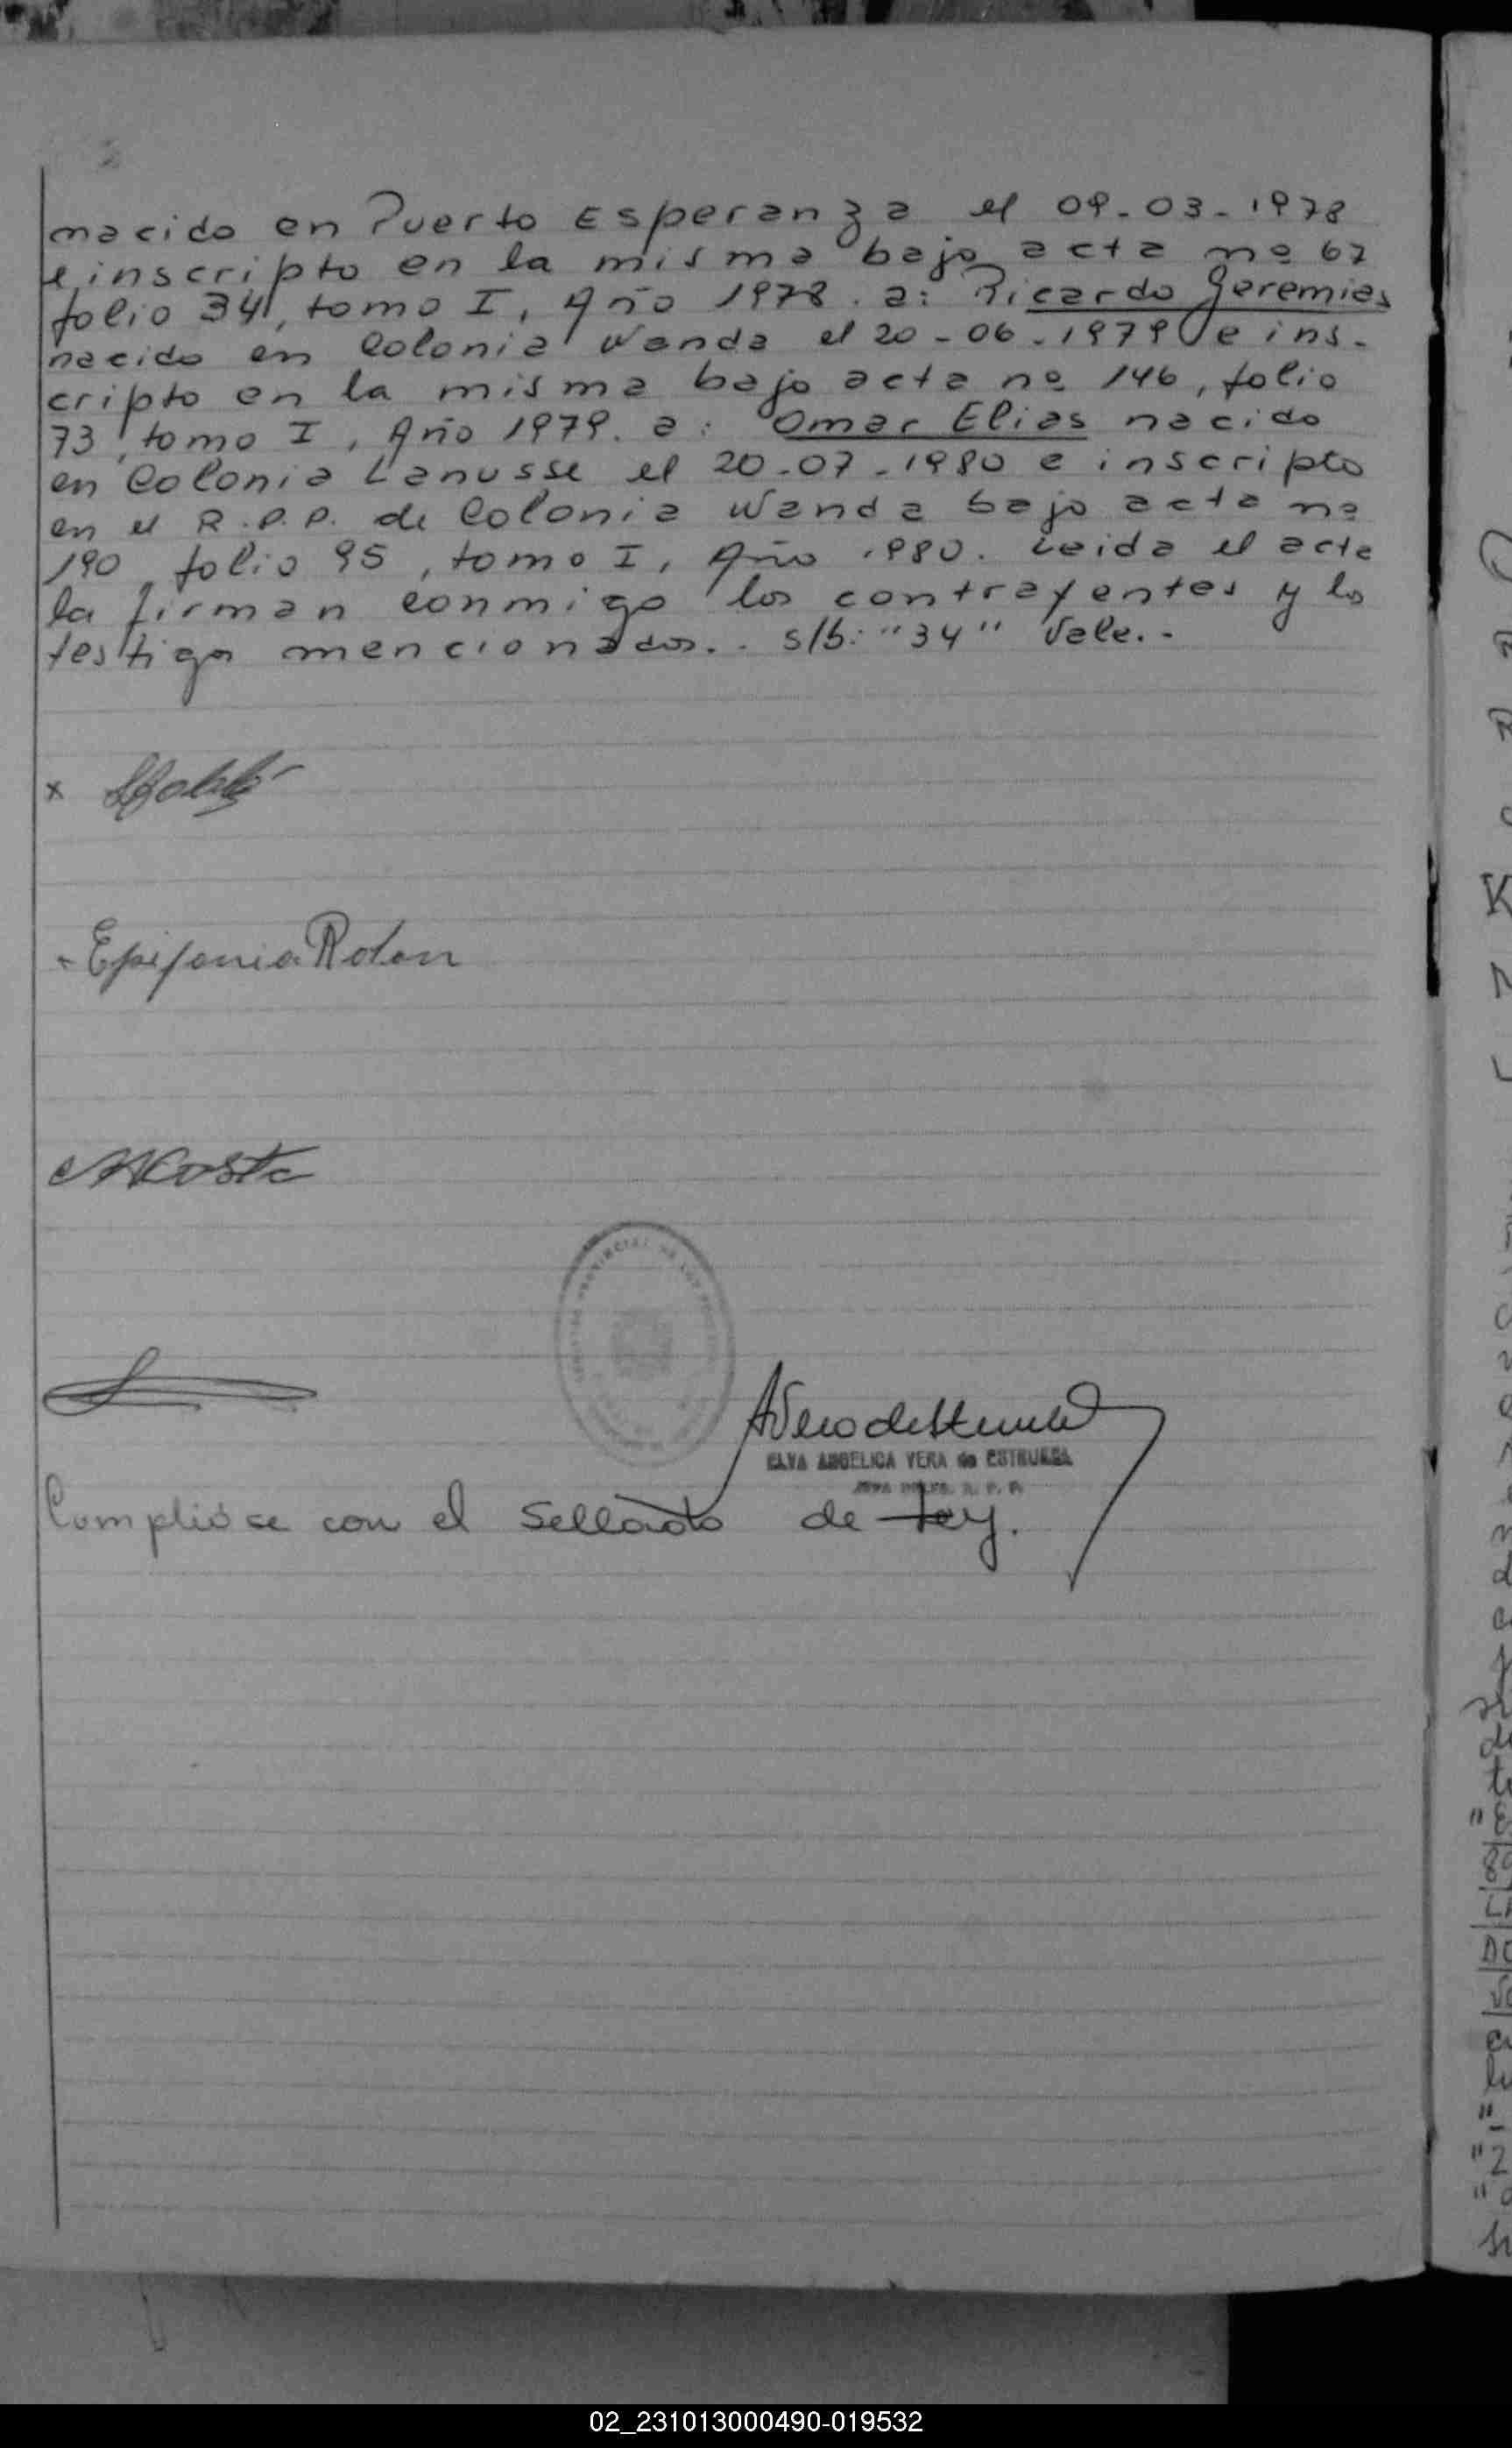 nacido en Puerto Esperanza el 09-03-1978
e inscripto en la misma bajo acta nº 67
folio 34, tomo I, Año 1978. a: Ricardo Geremias
nacido en Colonia Wanda el 20-06-1979 e ins-
cripto en la misma bajo acta nº 146, folio
73, tomo I, Año 1979. a: Omar Elias nacido
en Colonia Lanusse el 20-07-1980 e inscripto
en el R.P.P. de Colonia Wanda bajo acta nº
190, folio 95, tomo I, Año 1980. Leida el acta
la firman conmigo los contrayentes y los
testigos mencionados.. s/b: "34" Vale.-
x
Epifania Rolon
Acosta
ELVA ANGELICA VERA de ESTRUEGA
R. P. P.
Complióse con el Sellado de Ley.
02_231013000490-019532